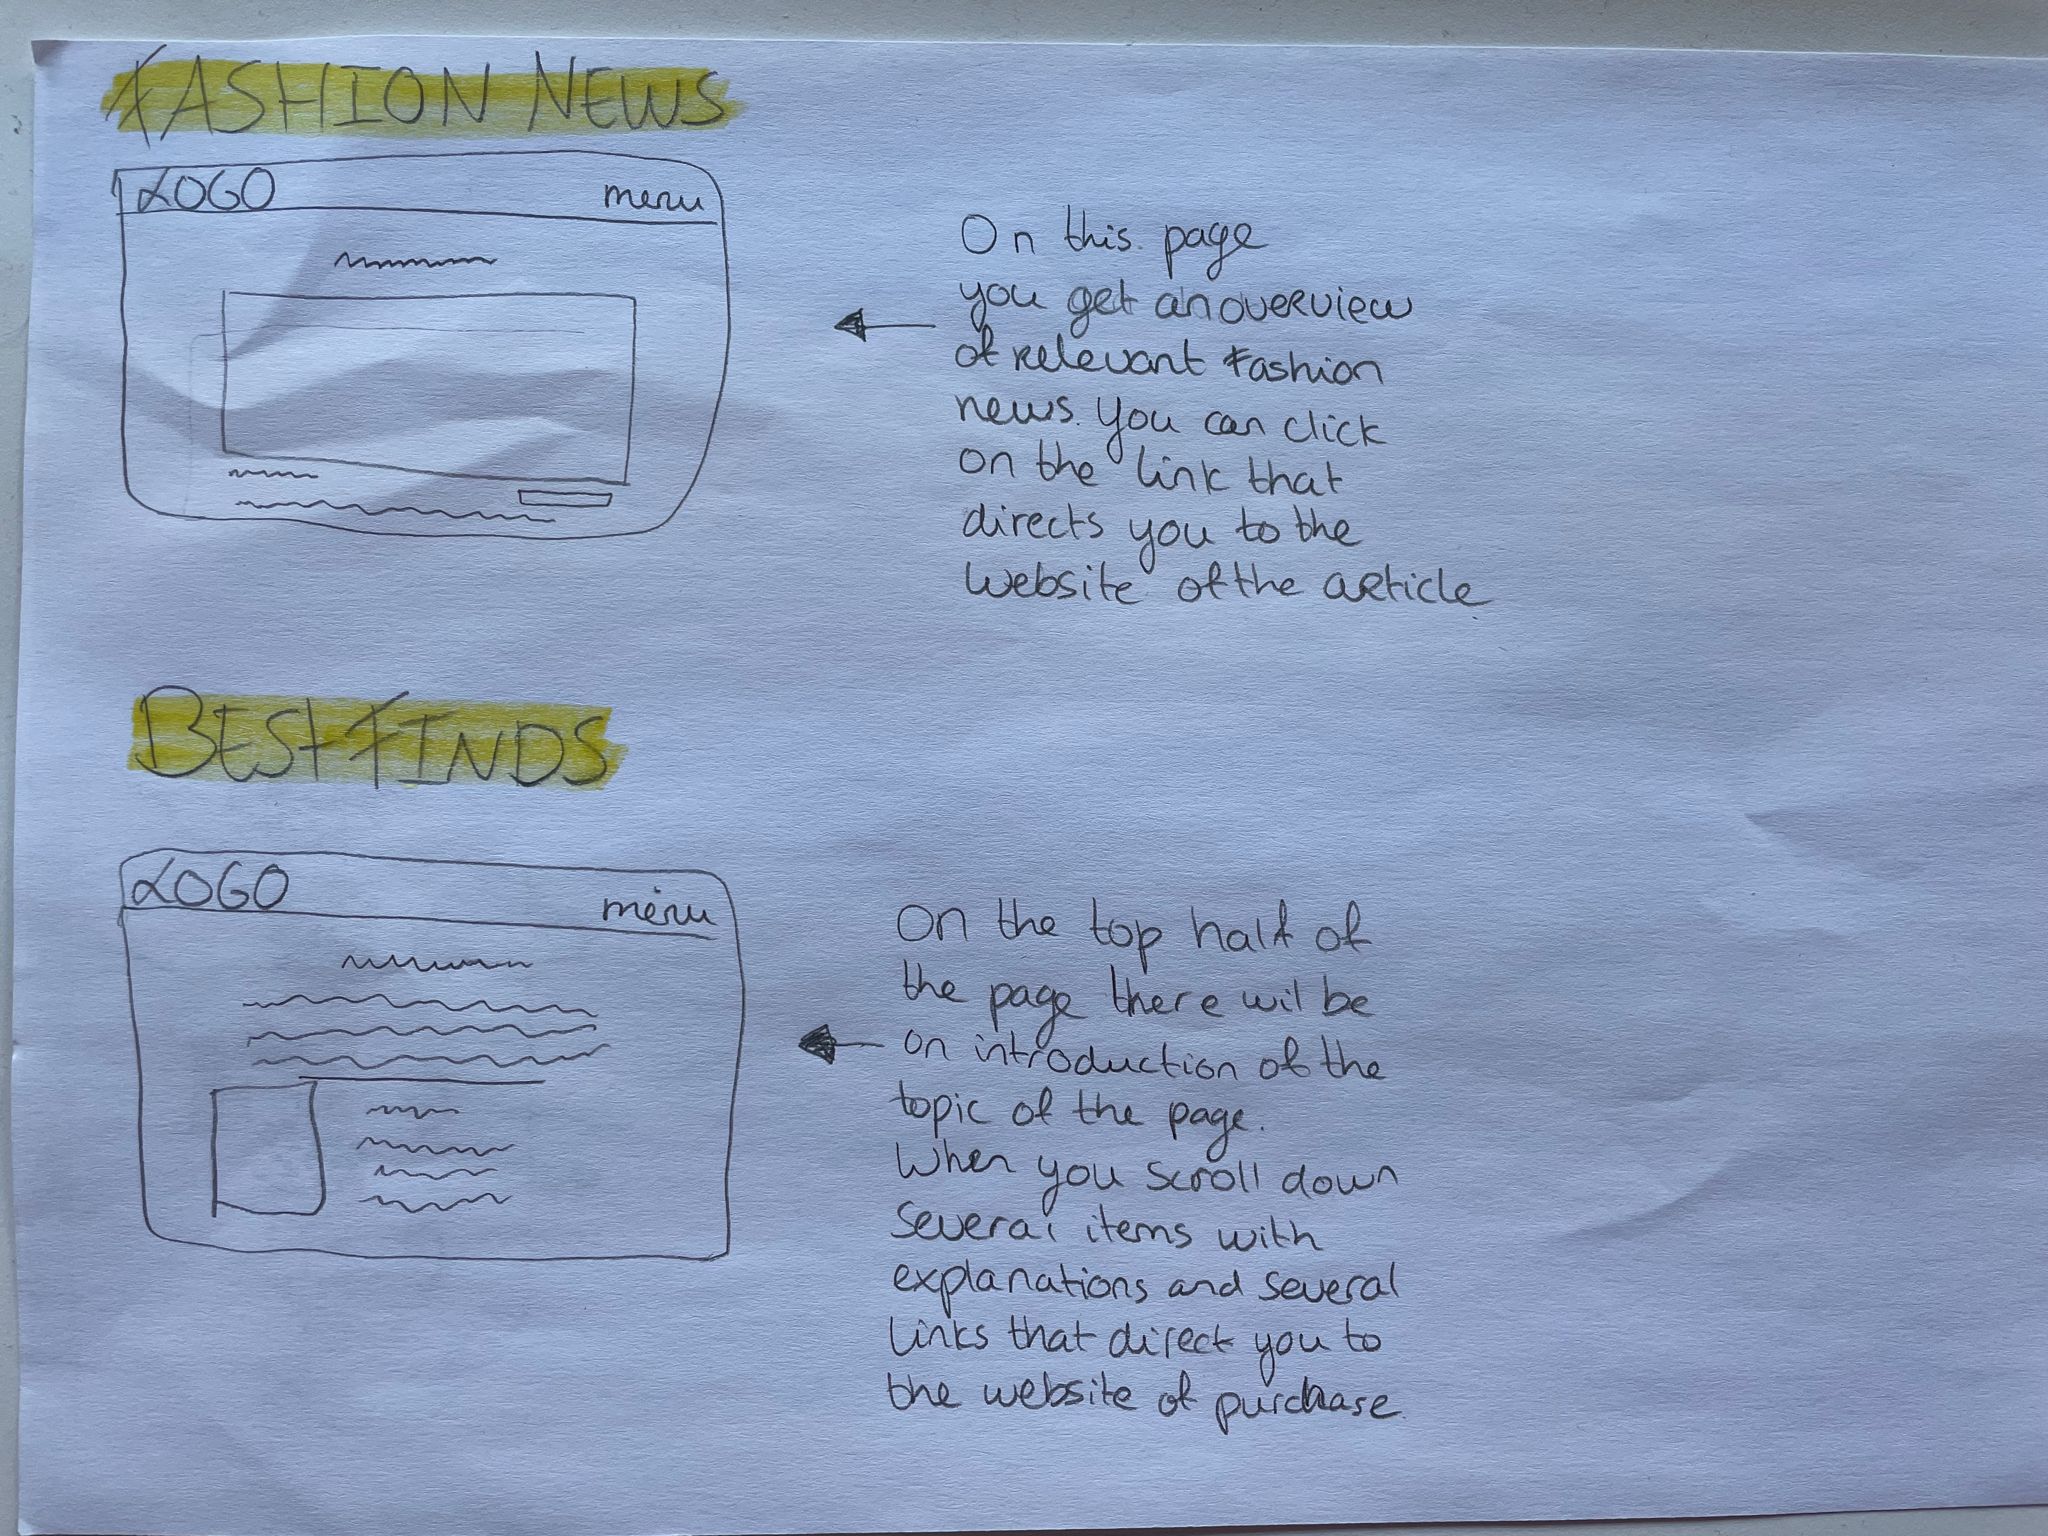 FASHION NEWS
LOGO menu
On this page
you get an overview
of relevant Fashion
news. You can click
on the link that
directs you to the
website of the article
BEST FINDS
LOGO menu
On the top half of
the page there wil be
on introduction of the
topic of the page.
When you scroll down
several items with
explanations and several
links that direct you to
the website of purchase.